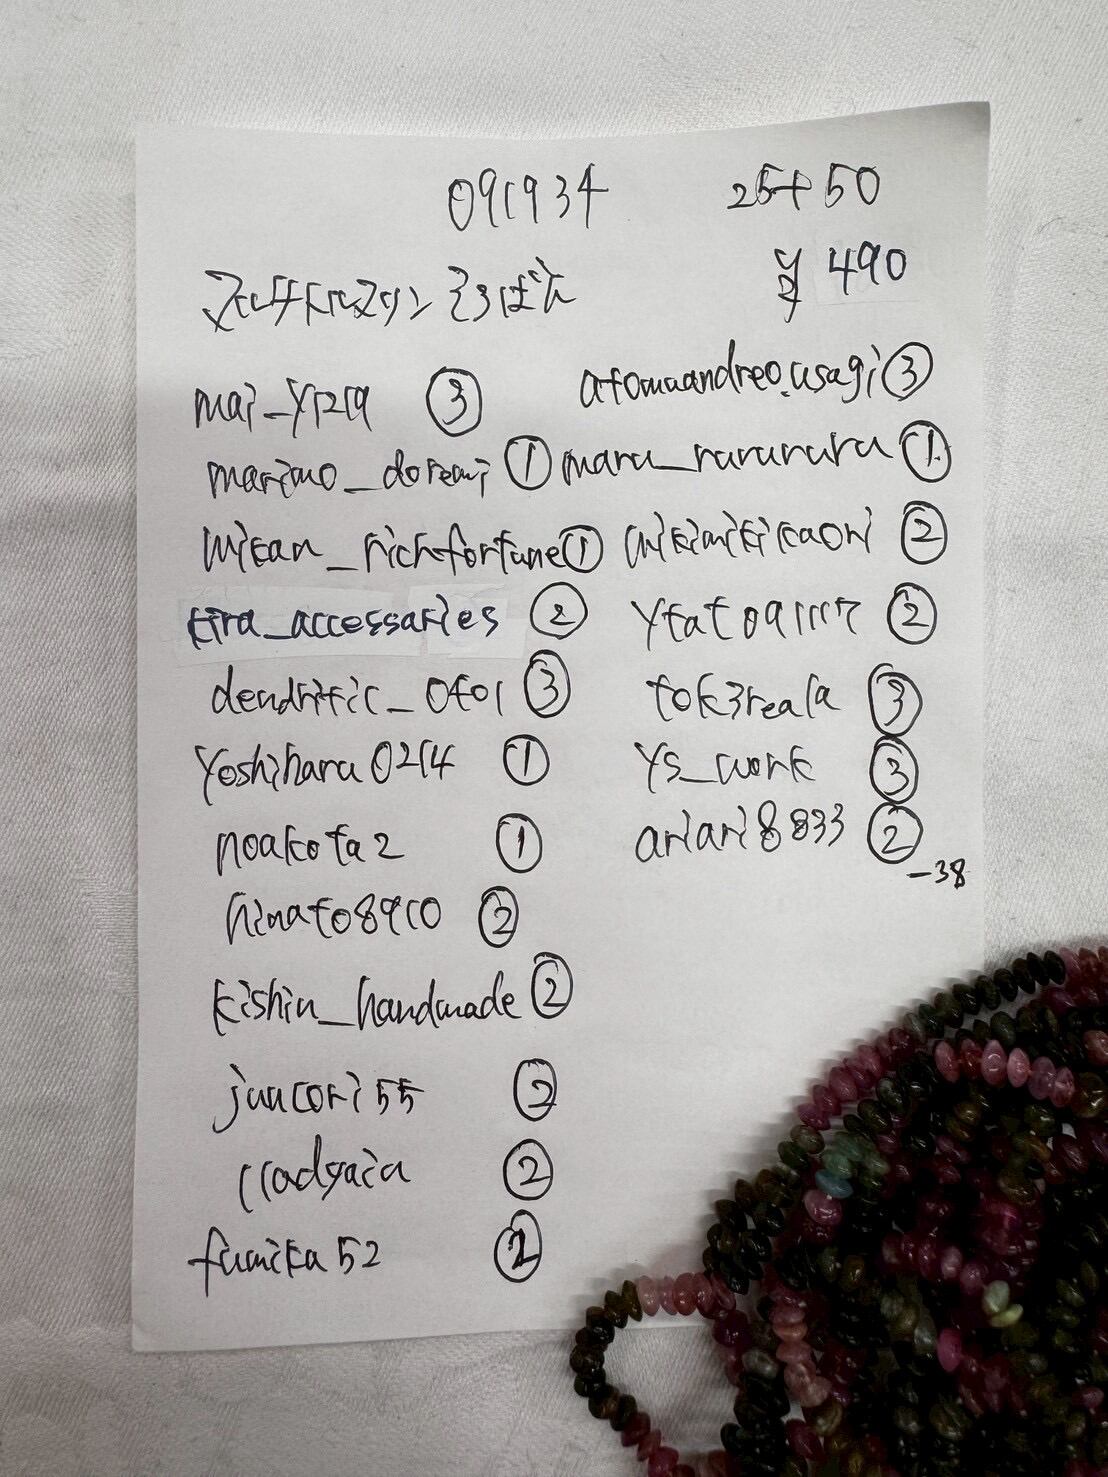 091934
25+50
¥490
マルチトルマリン そろばん
mai_y1219 ③
marimo_doremi ①
mikan_richfortune ①
kira_accessaries ②
dendritic_0401 ③
yoshiharu0214 ①
noakota2 ①
hinato8910 ②
kishin_handmade ②
juncori55 ②
②
fumika52 ②
atomuandreo.usagi ③
maru_rurururu ①
mikimikikaori ②
ytat091117 ②
tok3reala ③
ys_work ③
ariari8833 ②
-38